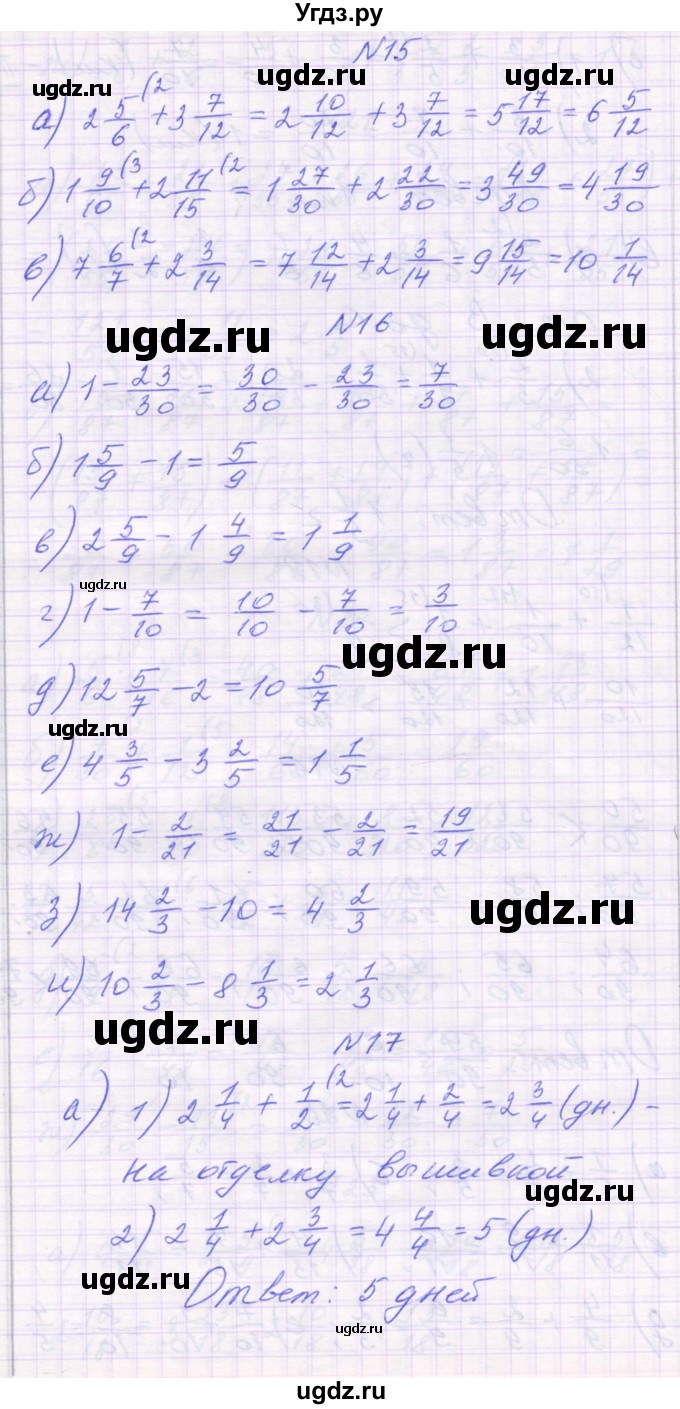 Угдз.ру
№15
ugdz.ru ugdz.ru ugdz.ru
а) 2 5/6 (2 + 3 7/12 = 2 10/12 + 3 7/12 = 5 17/12 = 6 5/12
б) 1 9/10 (3 + 2 11/15 (2 = 1 27/30 + 2 22/30 = 3 49/30 = 4 19/30
в) 7 6/7 (2 + 2 3/14 = 7 12/14 + 2 3/14 = 9 15/14 = 10 1/14
№16
ugdz.ru ugdz.ru
а) 1 - 23/30 = 30/30 - 23/30 = 7/30
б) 1 5/9 - 1 = 5/9
в) 2 5/9 - 1 4/9 = 1 1/9
ugdz.ru
г) 1 - 7/10 = 10/10 - 7/10 = 3/10
ugdz.ru
д) 12 5/7 - 2 = 10 5/7
ugdz.ru
е) 4 3/5 - 3 2/5 = 1 1/5
ж) 1 - 2/21 = 21/21 - 2/21 = 19/21
з) 14 2/3 - 10 = 4 2/3
ugdz.ru
и) 10 2/3 - 8 1/3 = 2 1/3
ugdz.ru
№17
а) 1) 2 1/4 + 1/2 (2 = 2 1/4 + 2/4 = 2 3/4 (дн.) -
на отделку вышивкой
ugdz.ru
2) 2 1/4 + 2 3/4 = 4 4/4 = 5 (дн.)
ugdz.ru
Ответ: 5 дней
ugdz.ru
ugdz.ru